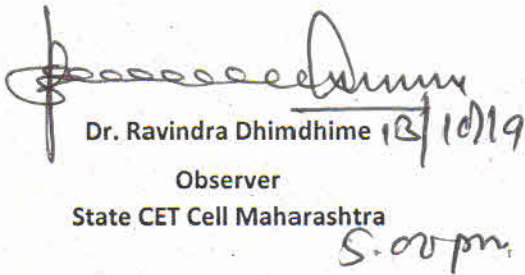 Dr. Ravindra Dhimdhime 13/10/19
Observer
State CET Cell Maharashtra
5.00 pm.